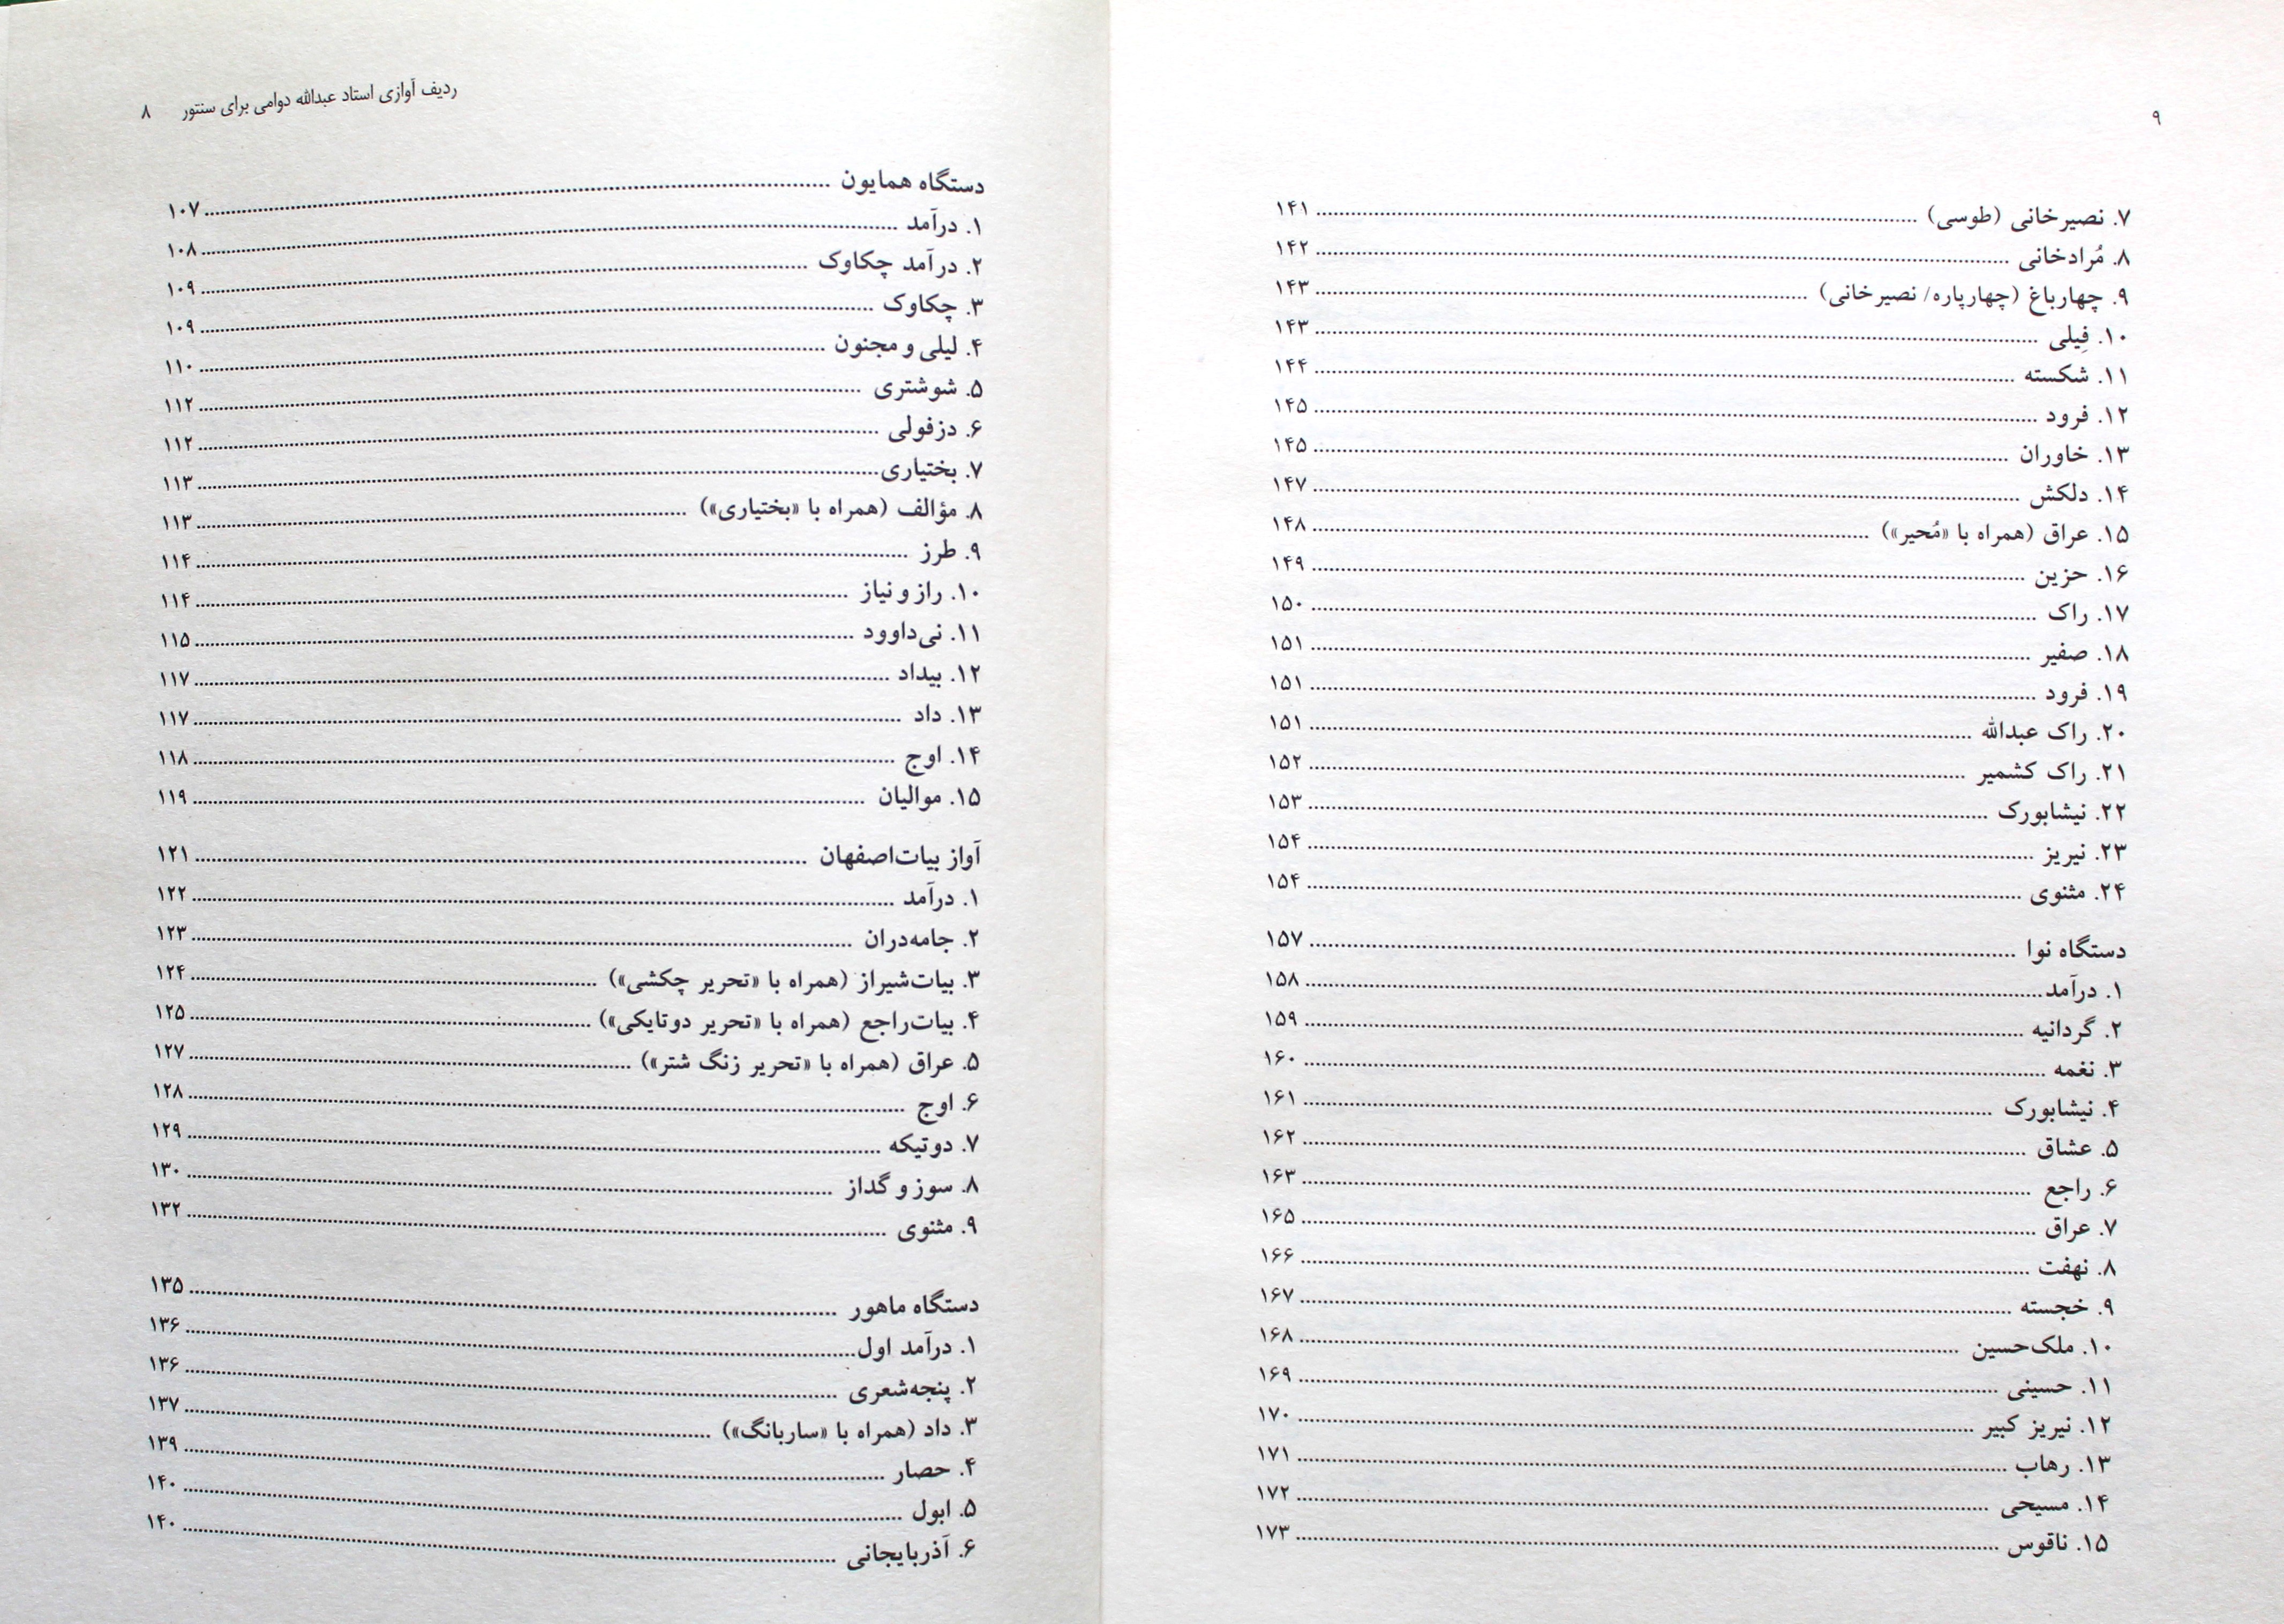 ردیف آوازی استاد عبدالله دوامی برای سنتور ۸
دستگاه همایون ........ ۱۰۷
۱. درآمد ........ ۱۰۸
۲. درآمد چکاوک ........ ۱۰۹
۳. چکاوک ........ ۱۰۹
۴. لیلی و مجنون ........ ۱۱۰
۵. شوشتری ........ ۱۱۲
۶. دزفولی ........ ۱۱۲
۷. بختیاری ........ ۱۱۳
۸. مؤالف (همراه با «بختیاری») ........ ۱۱۳
۹. طرز ........ ۱۱۴
۱۰. راز و نیاز ........ ۱۱۴
۱۱. نی‌داوود ........ ۱۱۵
۱۲. بیداد ........ ۱۱۷
۱۳. داد ........ ۱۱۷
۱۴. اوج ........ ۱۱۸
۱۵. موالیان ........ ۱۱۹
آواز بیات‌اصفهان ........ ۱۲۱
۱. درآمد ........ ۱۲۲
۲. جامه‌دران ........ ۱۲۳
۳. بیات‌شیراز (همراه با «تحریر چکشی») ........ ۱۲۴
۴. بیات‌راجع (همراه با «تحریر دوتایکی») ........ ۱۲۵
۵. عراق (همراه با «تحریر زنگ شتر») ........ ۱۲۷
۶. اوج ........ ۱۲۸
۷. دوتیکه ........ ۱۲۹
۸. سوز و گداز ........ ۱۳۰
۹. مثنوی ........ ۱۳۲
دستگاه ماهور ........ ۱۳۵
۱. درآمد اول ........ ۱۳۶
۲. پنجه‌شعری ........ ۱۳۶
۳. داد (همراه با «ساربانگ») ........ ۱۳۷
۴. حصار ........ ۱۳۹
۵. ابول ........ ۱۴۰
۶. آذربایجانی ........ ۱۴۰
۹
۷. نصیرخانی (طوسی) ........ ۱۴۱
۸. مُرادخانی ........ ۱۴۲
۹. چهارباغ (چهارپاره/ نصیرخانی) ........ ۱۴۳
۱۰. فِیلی ........ ۱۴۳
۱۱. شکسته ........ ۱۴۴
۱۲. فرود ........ ۱۴۵
۱۳. خاوران ........ ۱۴۵
۱۴. دلکش ........ ۱۴۷
۱۵. عراق (همراه با «مُحیر») ........ ۱۴۸
۱۶. حزین ........ ۱۴۹
۱۷. راک ........ ۱۵۰
۱۸. صفیر ........ ۱۵۱
۱۹. فرود ........ ۱۵۱
۲۰. راک عبدالله ........ ۱۵۱
۲۱. راک کشمیر ........ ۱۵۲
۲۲. نیشابورک ........ ۱۵۳
۲۳. نیریز ........ ۱۵۴
۲۴. مثنوی ........ ۱۵۴
دستگاه نوا ........ ۱۵۷
۱. درآمد ........ ۱۵۸
۲. گردانیه ........ ۱۵۹
۳. نغمه ........ ۱۶۰
۴. نیشابورک ........ ۱۶۱
۵. عشاق ........ ۱۶۲
۶. راجع ........ ۱۶۳
۷. عراق ........ ۱۶۵
۸. نهفت ........ ۱۶۶
۹. خجسته ........ ۱۶۷
۱۰. ملک‌حسین ........ ۱۶۸
۱۱. حسینی ........ ۱۶۹
۱۲. نیریز کبیر ........ ۱۷۰
۱۳. رهاب ........ ۱۷۱
۱۴. مسیحی ........ ۱۷۲
۱۵. ناقوس ........ ۱۷۳